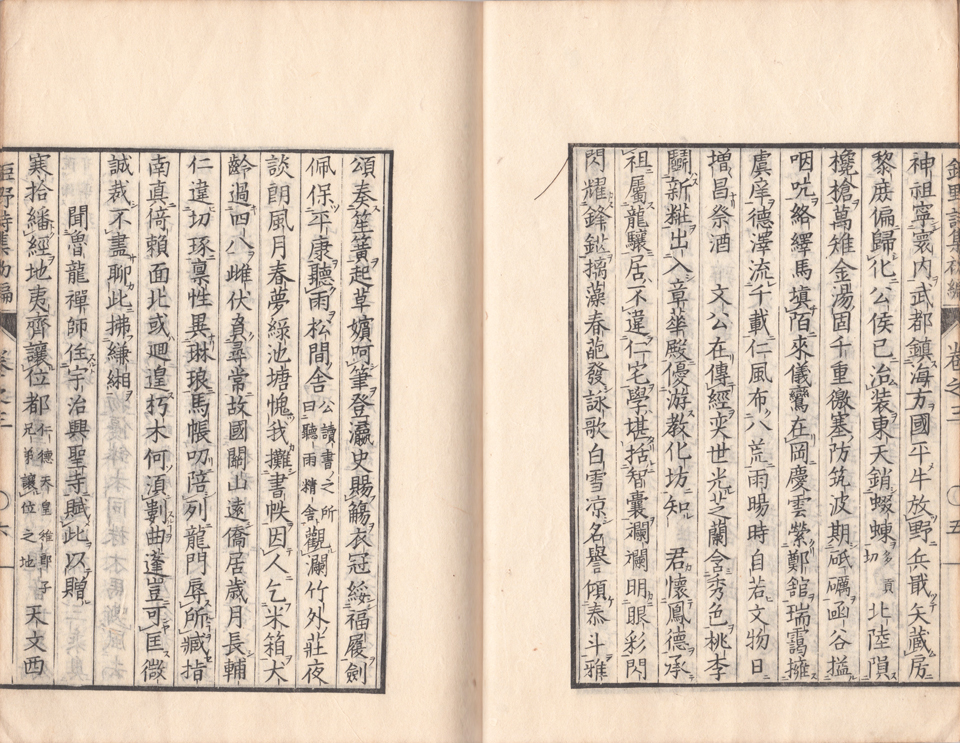 神祖寧寰内武都鎮海方國平牛放野兵戢矢蔵房
黎庶偏歸化公侯已治装東天銷蝃蝀切多貢北陸隕
欃槍萬雉金湯固千重徼塞防筑波期砥礪凾谷搤
咽吭絡繹馬塡陌來儀鸞在岡慶雲縈鄭舘瑞靄擁
虞庠德澤流千載仁風布八荒雨暘時自若文物日
增昌祭酒文公在傳經奕世光芝蘭含秀色桃李
鬬新粧出入章華殿優游教化坊知君懷鳳德承
祖屬龍驤居不違仁宅學堪括智囊斕斕明眼彩閃
閃耀鋒鋩摛藻春葩發詠歌白雪凉名譽傾泰斗雅
頌奏笙簧起草嬪呵筆登瀛史賜觴衣冠綏福履劍
佩保平康聽雨松間舍公讀書之所曰聽雨精舍觀瀾竹外莊夜
談朗風月春夢綠池塘愧我攤書帙因人乞米箱犬
齡過四八雌伏負尋常故國關山遠僑居歳月長輔
仁違切琢禀性異琳琅馬帳叨陪列龍門辱所臧指
南真倚賴面北或廻遑朽木何湏劃曲蓬豈可匡微
誠裁不盡聊此拂縑緗
聞魯龍禪師住宇治興聖寺賦此以贈
寒拾繙經地夷齊讓位都仁德天皇稚郎子兄弟讓位之地天文西
卷之三
〇五
〇六